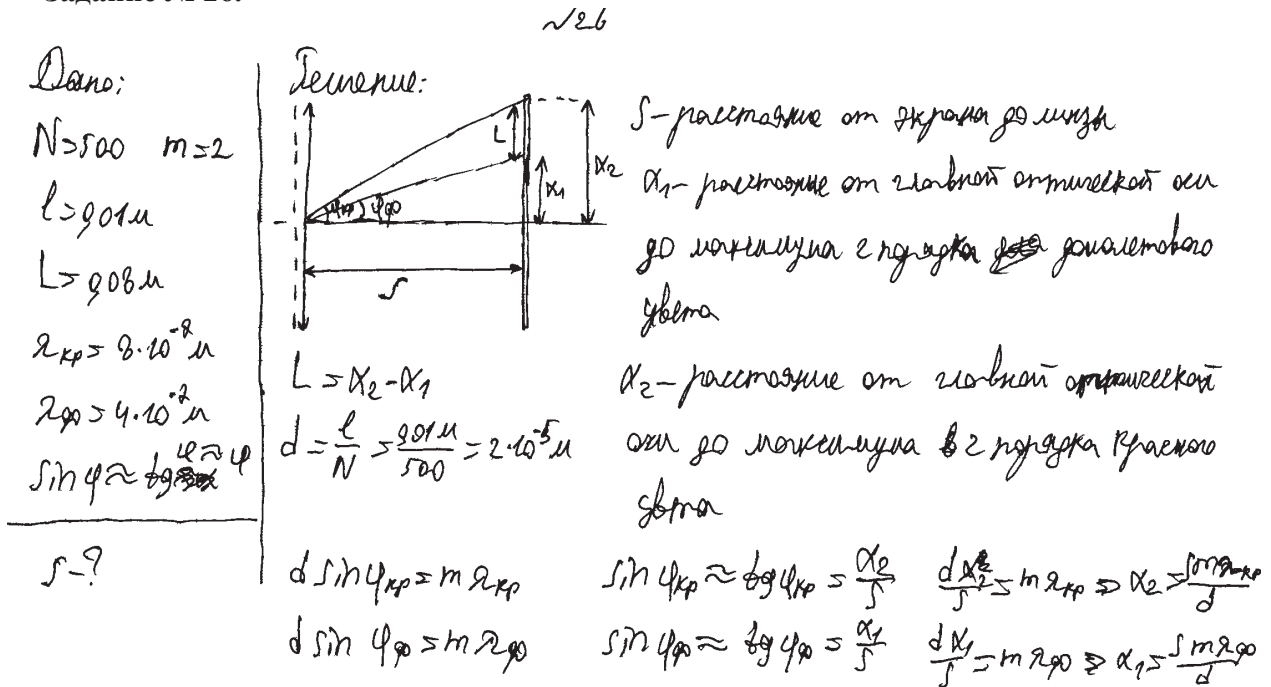 №26
Дано:
N=500 m=2
l=0,01м
L=0,08м
λкр=8·10⁻⁷м
λф=4·10⁻⁷м
sin φ≈tg φ≈φ
S-?
Решение:
L
x₁
x₂
φкр φф
S
L=x₂-x₁
d=l/N=0,01м/500=2·10⁻⁵м
d sin φкр=mλкр
d sin φф=mλф
S-расстояние от экрана до линзы
x₁-расстояние от главной оптической оси
до максимума 2 порядка фиолетового
цвета
x₂-расстояние от главной оптической
оси до максимума в 2 порядка красного
цвета
sin φкр≈tg φкр=x₂/S dx₂/S=mλкр ⇒ x₂=Smλкр/d
sin φф≈tg φф=x₁/S dx₁/S=mλф ⇒ x₁=Smλф/d